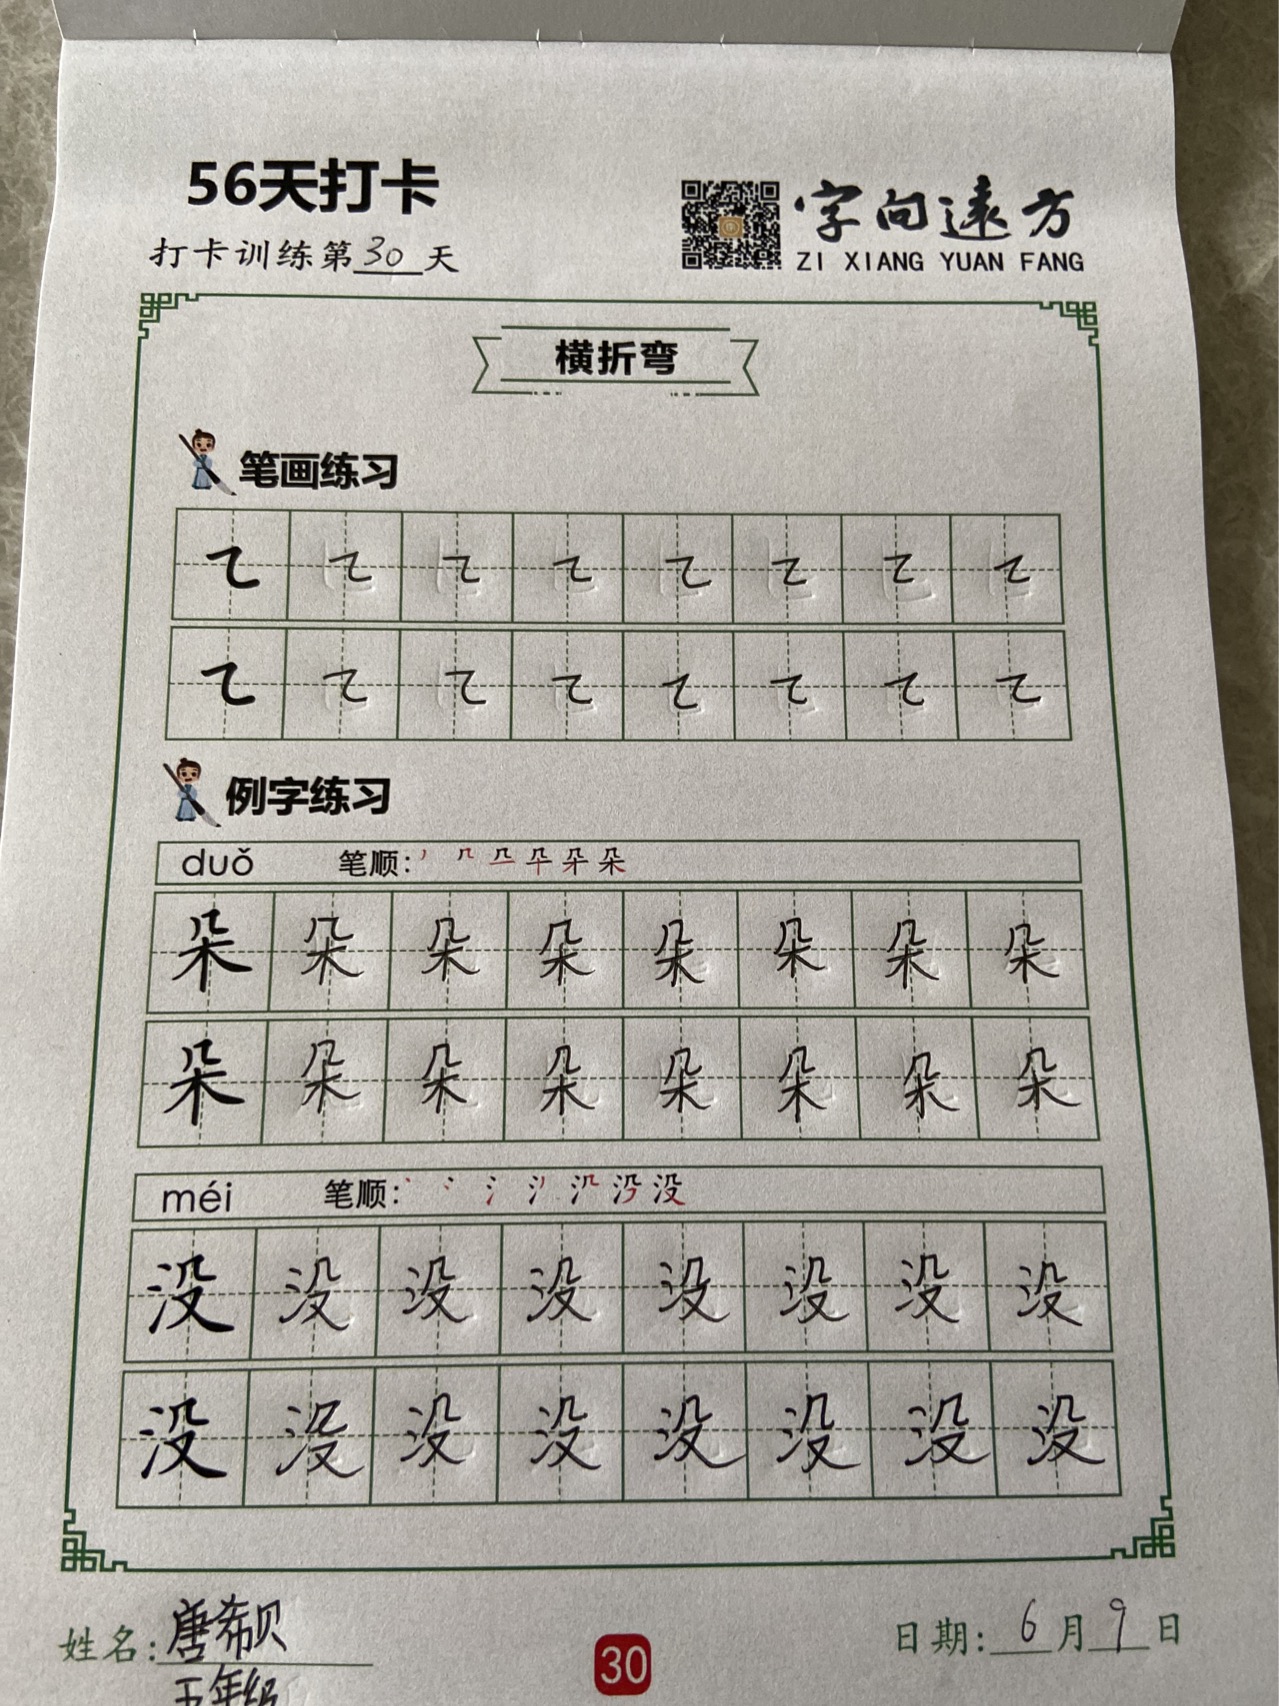 56天打卡
打卡训练第30天
字向遠方
ZI XIANG YUAN FANG
横折弯
笔画练习
例字练习
duǒ 笔顺:
朵 朵 朵 朵 朵 朵 朵 朵
朵 朵 朵 朵 朵 朵 朵 朵
méi 笔顺:
没 没 没 没 没 没 没 没
没 没 没 没 没 没 没 没
姓名:唐希贝
五年级
日期:6月9日
30